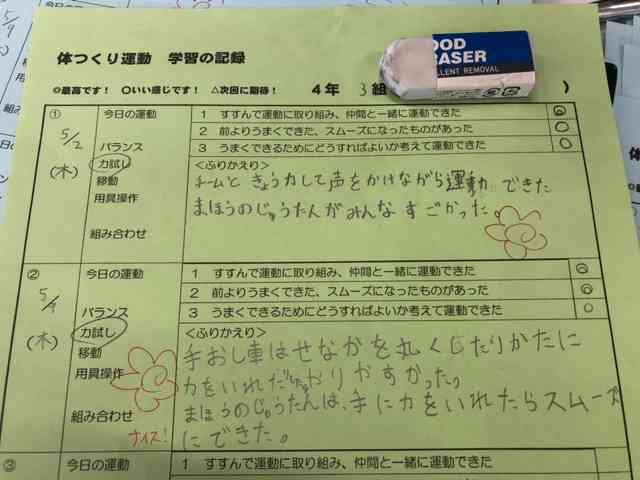 体つくり運動 学習の記録
◎最高です! ○いい感じです! △次回に期待! 4年 3組 )
OOD
ERASER
LLENT REMOVAL
① 今日の運動 1 すすんで運動に取り組み、仲間と一緒に運動できた ◎
5/2 2 前よりうまくできた、スムーズになったものがあった ○
(木) バランス 3 うまくできるためにどうすればよいか考えて運動できた ○
力試し <ふりかえり>
移動 チームときょう力して声をかけながら運動できた
用具操作 まほうのじゅうたんがみんなすごかった。
組み合わせ
② 今日の運動 1 すすんで運動に取り組み、仲間と一緒に運動できた ◎
5/9 2 前よりうまくできた、スムーズになったものがあった ◎
バランス 3 うまくできるためにどうすればよいか考えて運動できた ○
(木) 力試し <ふりかえり>
移動 手おし車はせなかを丸くしたりかたに
用具操作 力をいれ やりやすかった。
組み合わせ まほうのじゅうたんは、手に力をいれたらスムーズ
ナイス! にできた。
③ 今日の運動 1 すすんで運動に取り組み、仲間と一緒に運動できた